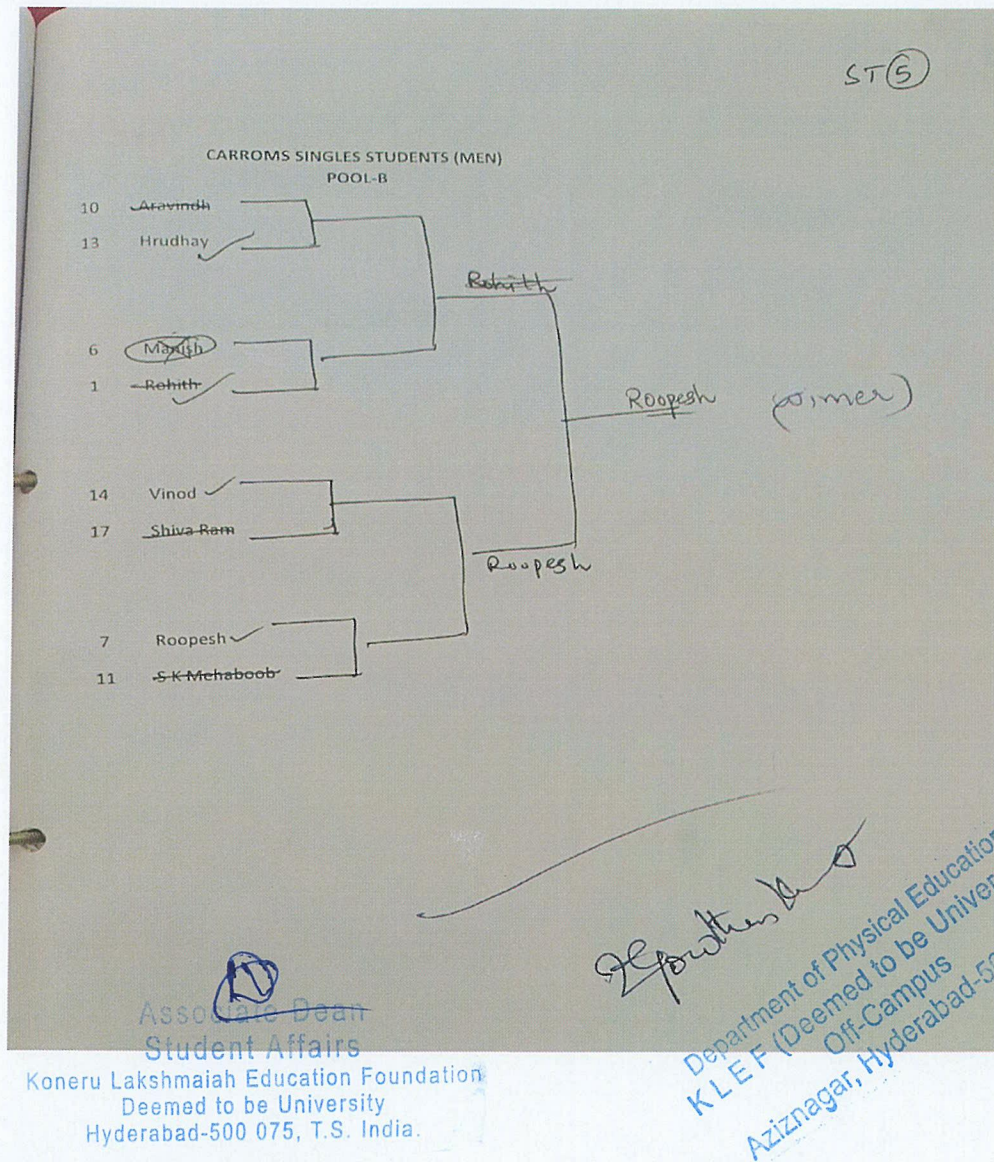 ST 5
CARROMS SINGLES STUDENTS (MEN)
POOL-B
10 Aravindh
13 Hrudhay
Rohith
6 Manish
1 Rohith
Roopesh (winner)
14 Vinod
17 Shiva Ram
Roopesh
7 Roopesh
11 S K Mehaboob
Associate Dean
Student Affairs
Koneru Lakshmaiah Education Foundation
Deemed to be University
Hyderabad-500 075, T.S. India.
Department of Physical Education
K L E F (Deemed to be Univer
Off-Campus
Aziznagar, Hyderabad-50